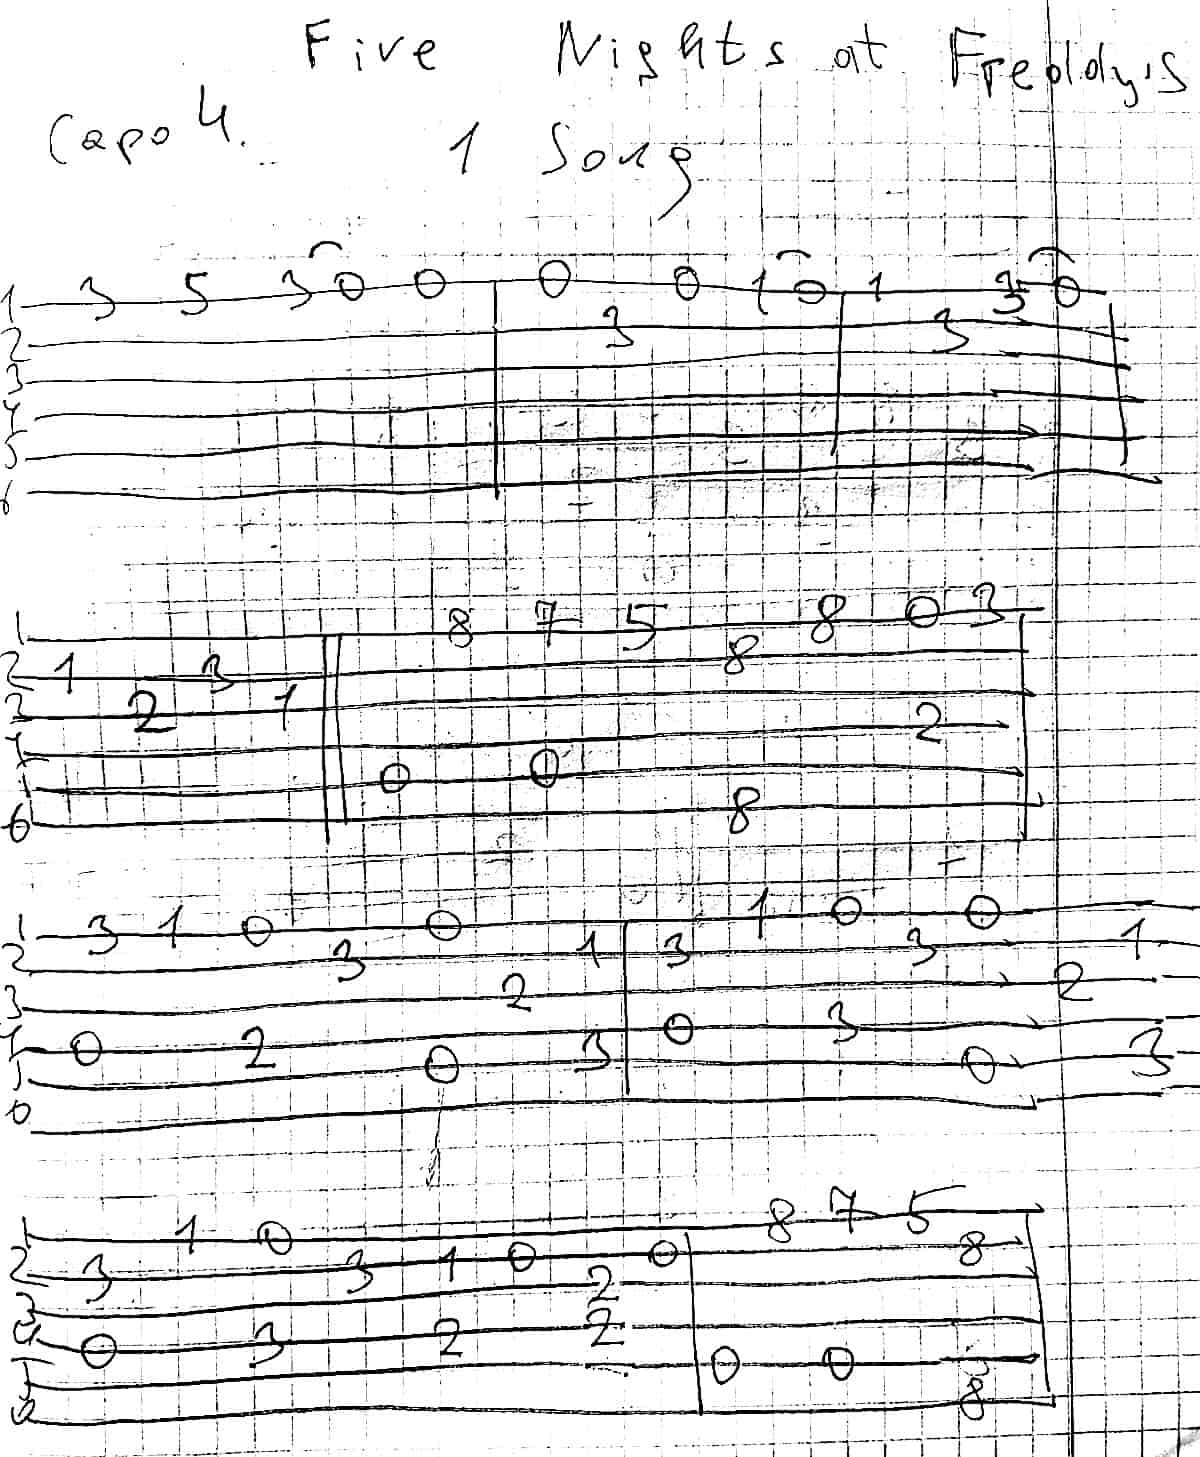 Five Nights at Freddy's
Capo 4. 1 Song
1 3 5 3 0 0 0 0 1 0 1 3 0
2 3 3
3
4
5
6
1 8 7 5 8 0 3
2 1 3 8
3 2 1
4 2
5 0 0
6 8
1 3 1 0 0 1 0 0
2 3 1 3 3 1
3 2 2
4 0 2 3 0 3
5 0 0 3
6
1 1 0 8 7 5
2 3 3 1 0 0 8
3 2
4 0 3 2 2
5 0 0
6 8